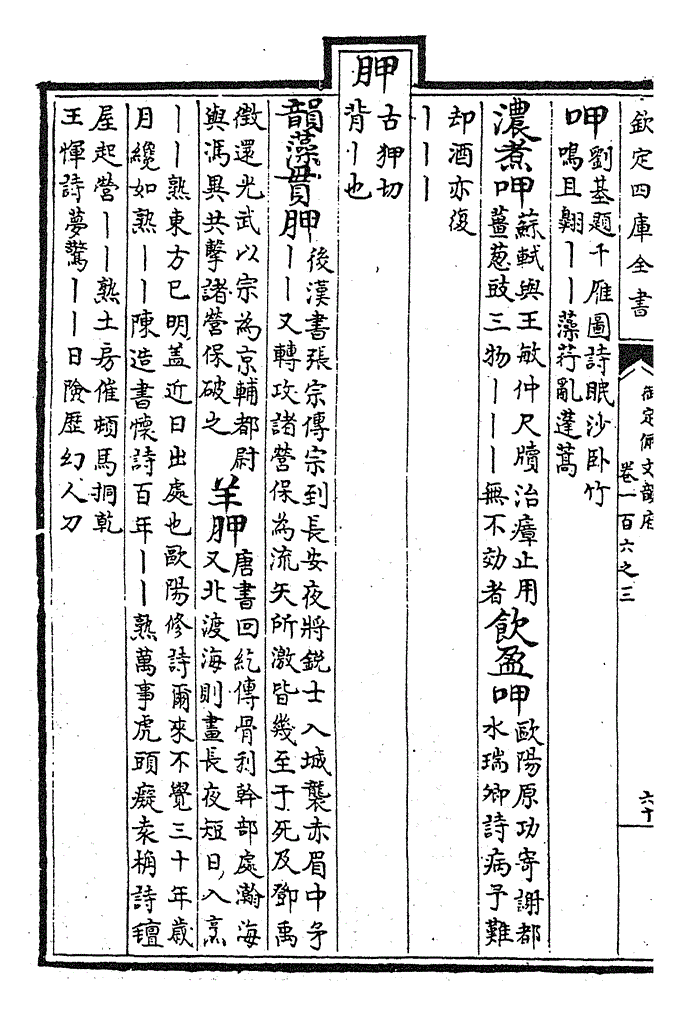 欽定四庫全書
御定佩文韻府
卷一百六之三
六十
呷
劉基題千雁圖詩眠沙卧竹
鳴且翺丨丨藻荇亂蓬蒿
濃煮呷
蘇軾與王敏仲尺牘治瘴止用
薑蔥豉三物丨丨丨無不効者
飲盈呷
歐陽原功寄謝都
水瑞卿詩病予難
却酒亦復
丨丨丨
胛
古狎切
背丨也
韻藻貫胛
後漢書張宗傳宗到長安夜將銳士入城襲赤眉中矛
丨丨又轉攻諸營保為流矢所激皆幾至于死及鄧禹
徵還光武以宗為京輔都尉
與馮異共擊諸營保破之
羊胛
唐書回紇傳骨利幹部處瀚海
又北渡海則晝長夜短日入烹
丨丨熟東方已明盖近日出處也歐陽修詩爾來不覺三十年歲
月纔如熟丨丨陳造書懷詩百年丨丨熟萬事虎頭癡袁桷詩氊
屋起營丨丨熟土房催頓馬挏乾
王惲詩夢驚丨丨日險歷幻人刀